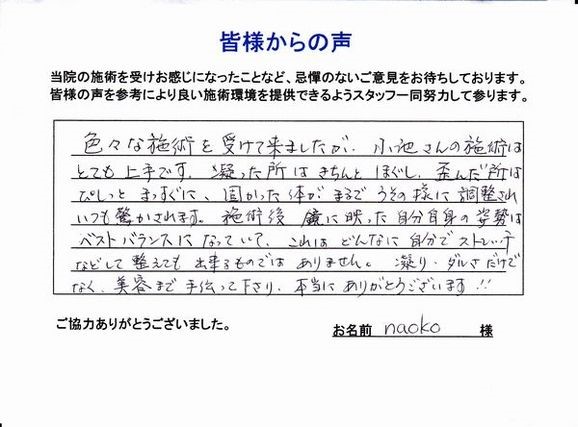 皆様からの声
当院の施術を受けお感じになったことなど、忌憚のないご意見をお待ちしております。
皆様の声を参考により良い施術環境を提供できるようスタッフ一同努力して参ります。
色々な施術を受けて来ましたが、小池さんの施術は
とても上手です。凝った所はきちんとほぐし、歪んだ所は
ぴしっとまっすぐに、固かった体がまるでうその様に調整され
いつも驚かされます。施術後鏡に映った自分自身の姿勢は
ベストバランスになっていて、これはどんなに自分でストレッチ
などして整えても出来るものではありません。凝り・ダルさだけで
なく、美容まで手伝って下さり、本当にありがとうございます!!
ご協力ありがとうございました。
お名前 naoko 様